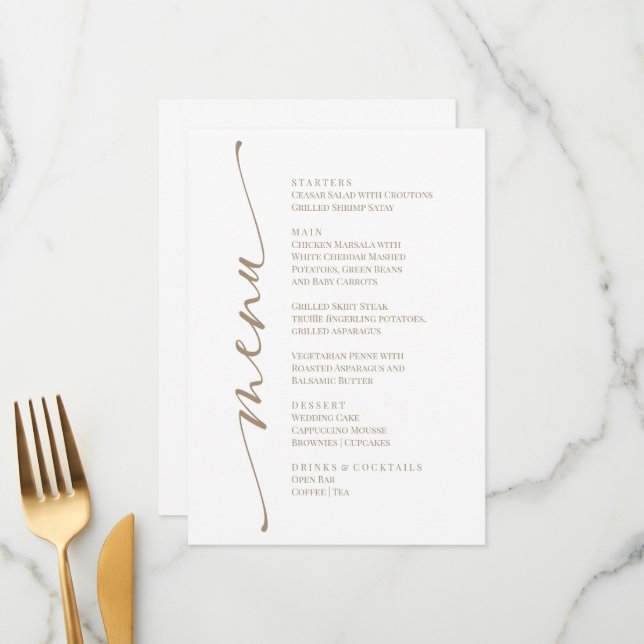 menu
STARTERS
CEASAR SALAD WITH CROUTONS
GRILLED SHRIMP SATAY
MAIN
CHICKEN MARSALA WITH
WHITE CHEDDAR MASHED
POTATOES, GREEN BEANS
AND BABY CARROTS
GRILLED SKIRT STEAK
TRUFFLE FINGERLING POTATOES,
GRILLED ASPARAGUS
VEGETARIAN PENNE WITH
ROASTED ASPARAGUS AND
BALSAMIC BUTTER
DESSERT
WEDDING CAKE
CAPPUCCINO MOUSSE
BROWNIES | CUPCAKES
DRINKS & COCKTAILS
OPEN BAR
COFFEE | TEA